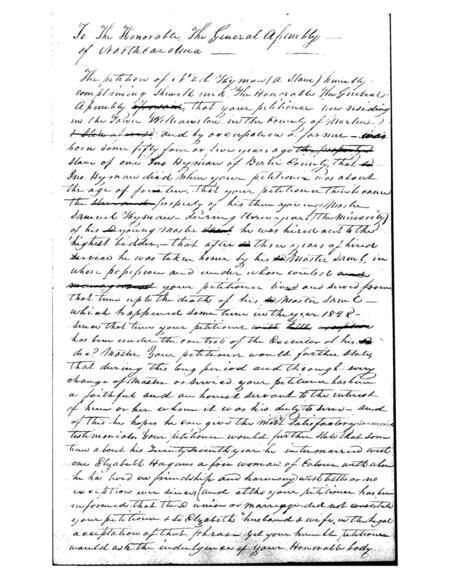 To The Honorable, The General Assembly
of North Carolina
The petition of Ned Hyman (A Slave) humbly
complaining Sheweth unto The Honorable The General
Assembly that your petitioner now residing
in the Town Williamston in the County of Martin
and by occupation a farmer — was
born some fifty four or five years ago the property &
slave of one Jno Hyman of Bertie County, that
Jno Hyman died when your petitioner was about
the age of that your petitioner then became
the property of his then young Master
Samuel Hyman during three years (The minority)
of his young Master he was hired out to the
highest bidder, — that after three years of hired
service he was taken home by his Master Saml, in
whose possession and under whose control and
your petitioner lived and served from
that time up to the death of his Master Saml —
which happened some time in the year 1828 —
since that time your petitioner
has been under the control of the Executor of his
decd Master. Your petitioner would further state,
that during this long period and through every
change of Master or service your petitioner has been
a faithful and an honest servant to the interest
of him or her whom it was his duty to serve — and
of this he hopes he can give the most satisfactory
testimonials. Your petitioner would further state that some
time about his Twenty Seventh year he intermarried with
one Elizabeth Hagans a free woman of Colour with whom
he has lived in friendship and harmony with little or no
exception ever since, (and altho your petitioner has been
informed that the union or marriage did not constitute
your petitioner & sd Elizabeth "husband & wife, in the legal
acceptation of that phrase. Yet your humble petitioner
would ask the indulgence of your Honorable body